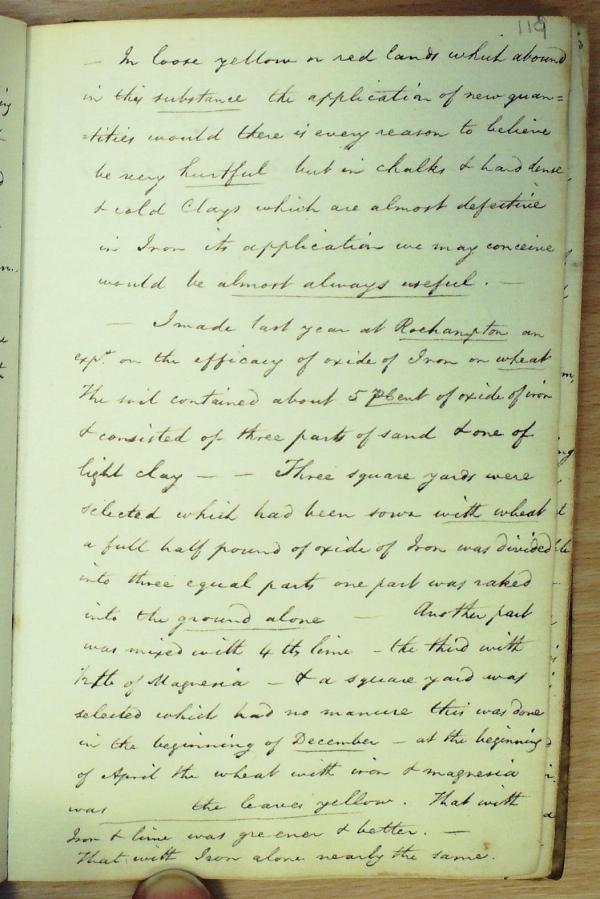 119
— In loose yellow or red lands which abound
in this substance the application of new quan=
=tities would there is every reason to believe
be very hurtful but in chalks & hard dense
& cold Clays which are almost defective
in Iron its application we may conceive
would be almost always useful. —
— I made last year at Roehampton an
expt. on the efficacy of oxide of Iron on wheat
The soil contained about 5 PCent of oxide of iron
& consisted of three parts of sand & one of
light clay — — Three square yards were
selected which had been sown with wheat
a full half pound of oxide of Iron was divided
into three equal parts one part was raked
into the ground alone — Another part
was mixed with 4 lbs lime – the third with
1/2 lb of Magnesia – & a square yard was
selected which had no manure this was done
in the beginning of December – at the beginning
of April the wheat with iron & magnesia
was the leaves yellow. That with
Iron & lime was greener & better. —
That with Iron alone nearly the same.